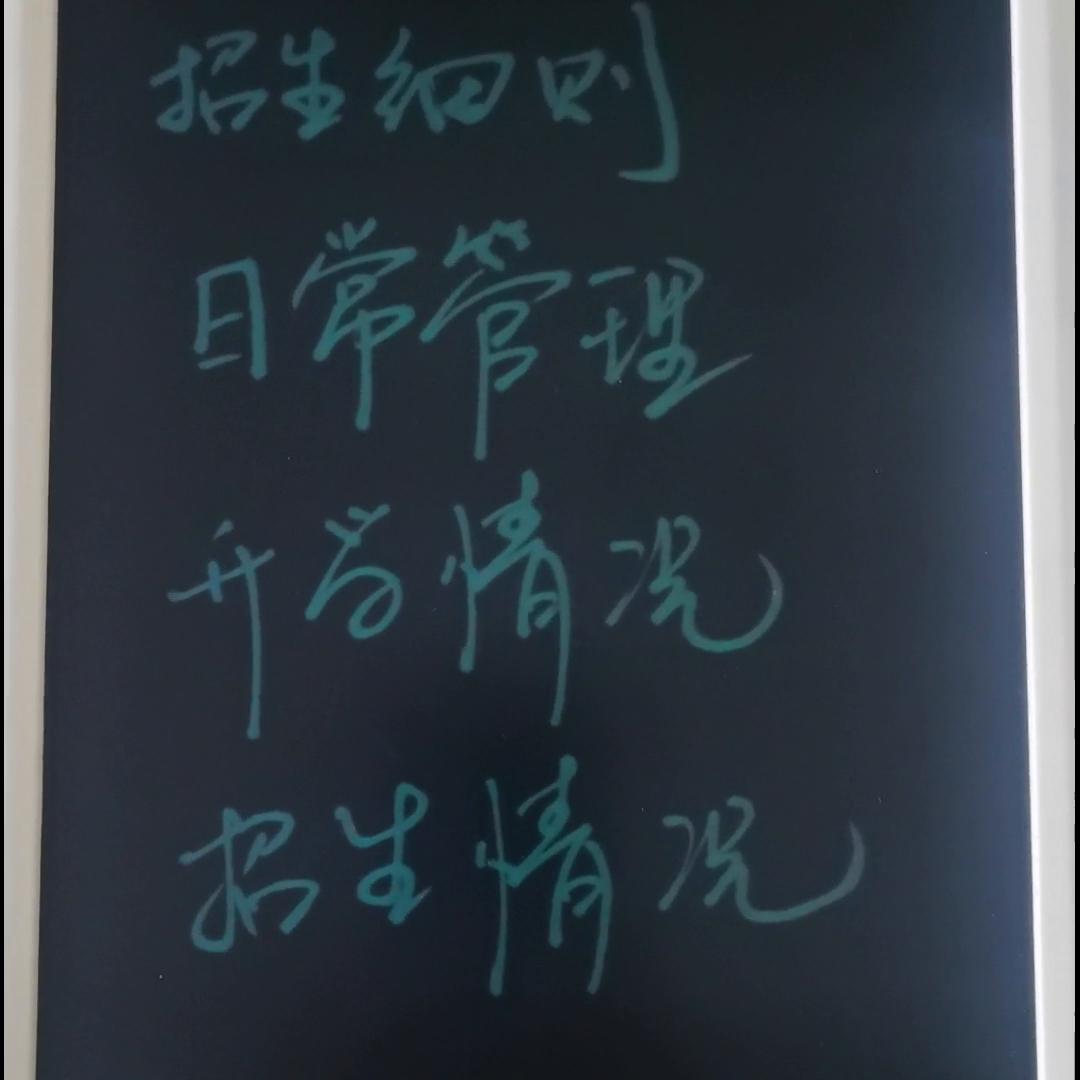 招生细则
日常管理
升学情况
招生情况